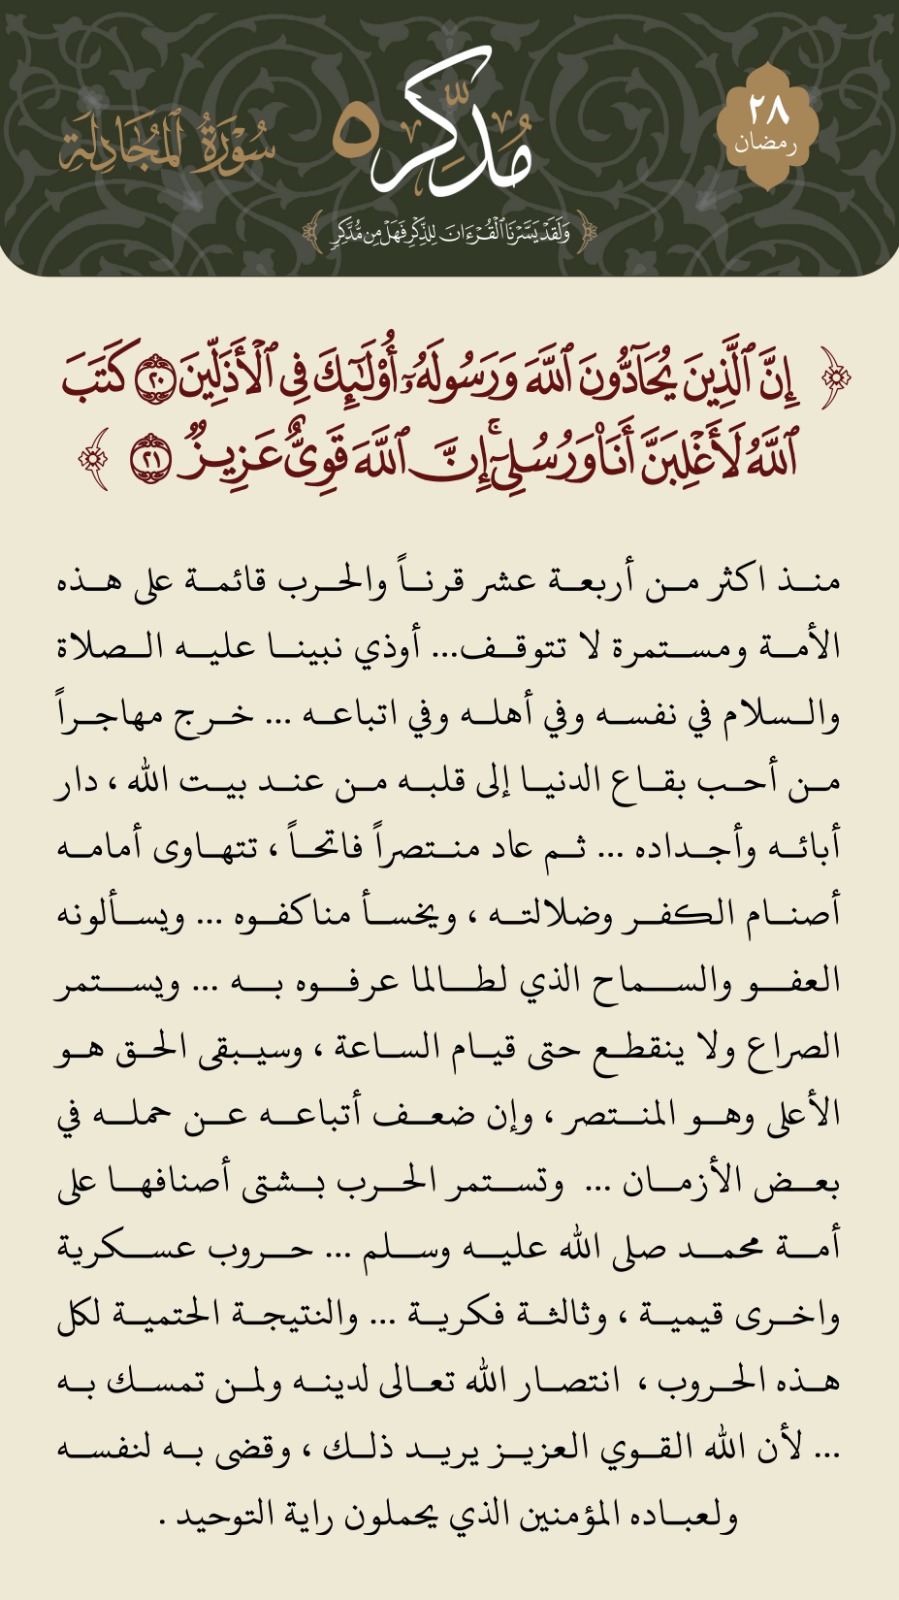 ٢٨
رمضان
مُدَّكِر ٥
سُورَةُ ٱلْمُجَادِلَة
﴿ وَلَقَدْ يَسَّرْنَا ٱلْقُرْءَانَ لِلذِّكْرِ فَهَلْ مِن مُّدَّكِرٍ ﴾
﴿ إِنَّ ٱلَّذِينَ يُحَآدُّونَ ٱللَّهَ وَرَسُولَهُۥٓ أُو۟لَـٰٓئِكَ فِى ٱلْأَذَلِّينَ ٢٠ كَتَبَ
ٱللَّهُ لَأَغْلِبَنَّ أَنَا۠ وَرُسُلِىٓ ۚ إِنَّ ٱللَّهَ قَوِىٌّ عَزِيزٌ ٢١ ﴾
منذ اكثر من أربعة عشر قرناً والحرب قائمة على هذه
الأمة ومستمرة لا تتوقف... أوذي نبينا عليه الصلاة
والسلام في نفسه وفي أهله وفي اتباعه ... خرج مهاجراً
من أحب بقاع الدنيا إلى قلبه من عند بيت الله ، دار
أبائه وأجداده ... ثم عاد منتصراً فاتحاً ، تتهاوى أمامه
أصنام الكفر وضلالته ، ويخسأ مناكفوه ... ويسألونه
العفو والسماح الذي لطالما عرفوه به ... ويستمر
الصراع ولا ينقطع حتى قيام الساعة ، وسيبقى الحق هو
الأعلى وهو المنتصر ، وإن ضعف أتباعه عن حمله في
بعض الأزمان ... وتستمر الحرب بشتى أصنافها على
أمة محمد صلى الله عليه وسلم ... حروب عسكرية
واخرى قيمية ، وثالثة فكرية ... والنتيجة الحتمية لكل
هذه الحروب ، انتصار الله تعالى لدينه ولمن تمسك به
... لأن الله القوي العزيز يريد ذلك ، وقضى به لنفسه
ولعباده المؤمنين الذي يحملون راية التوحيد .